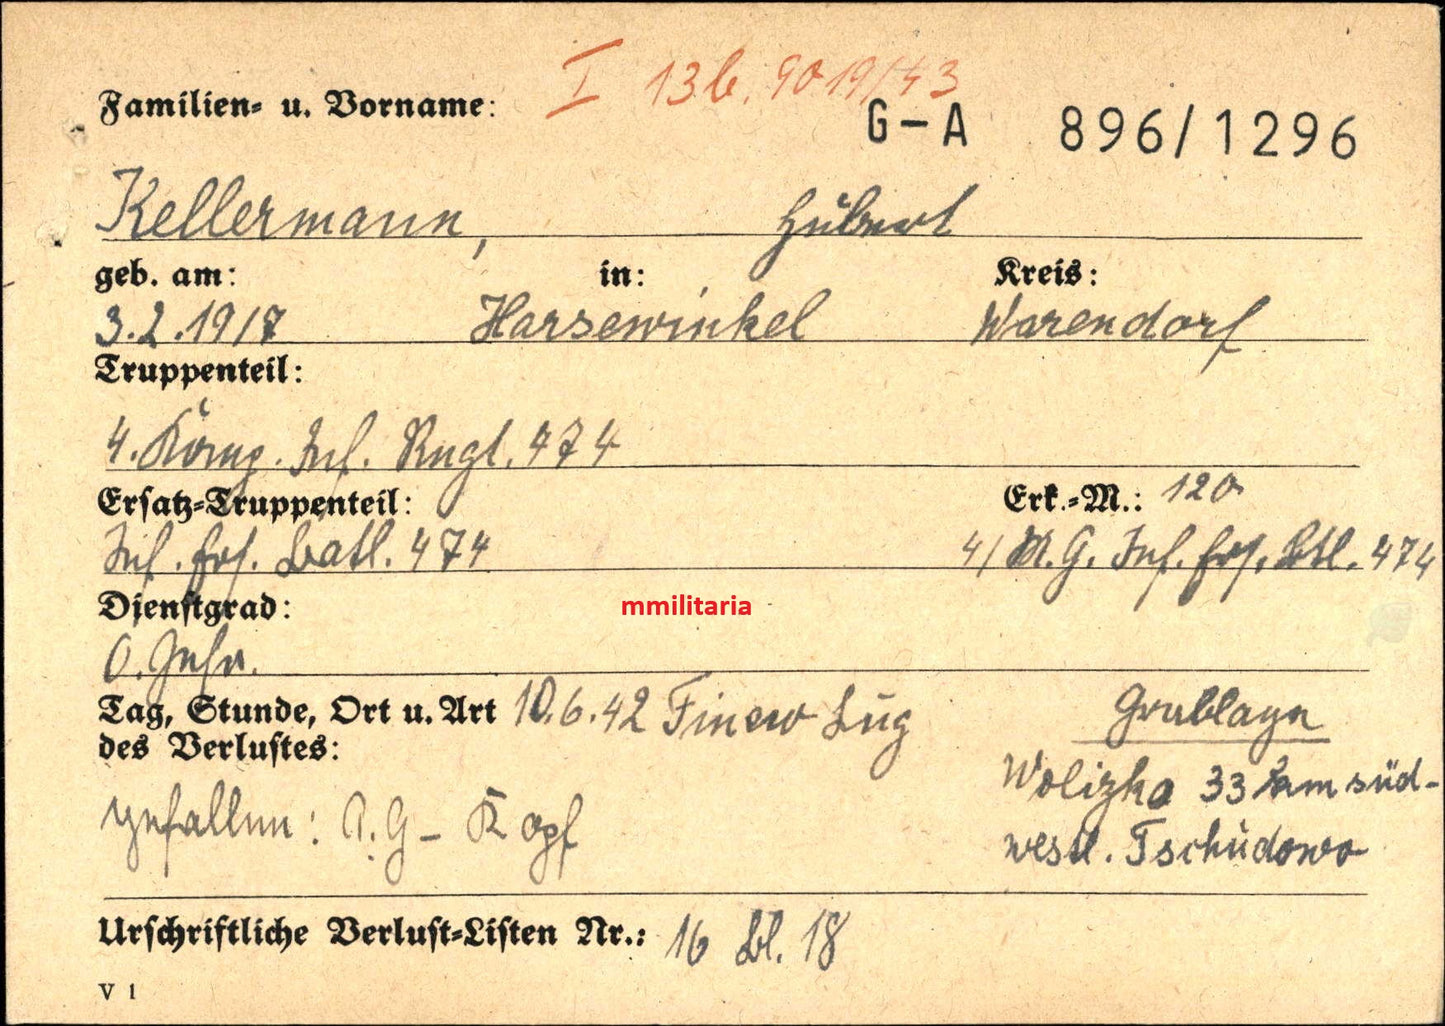 I 13b. 9019/43
Familien- u. Vorname:
G-A 896/1296
Kellermann, Hubert
geb. am: in: Kreis:
3.2.1917 Harsewinkel Warendorf
Truppenteil:
4. Komp. Inf. Rgt. 474
Ersatz-Truppenteil: Erk.-M.: 120
Inf. Ers. Batl. 474 4/ M.G. Inf. Ers. Btl. 474
Dienstgrad:
mmilitaria
O.
Tag, Stunde, Ort u. Art 10.6.42 Finew Lug Grablage
des Verlustes:
Wolizka 33 km süd-
gefallen: A.G- Kopf
westl. Tschudowo
Urschriftliche Verlust-Listen Nr.: 16 Bl. 18
V 1